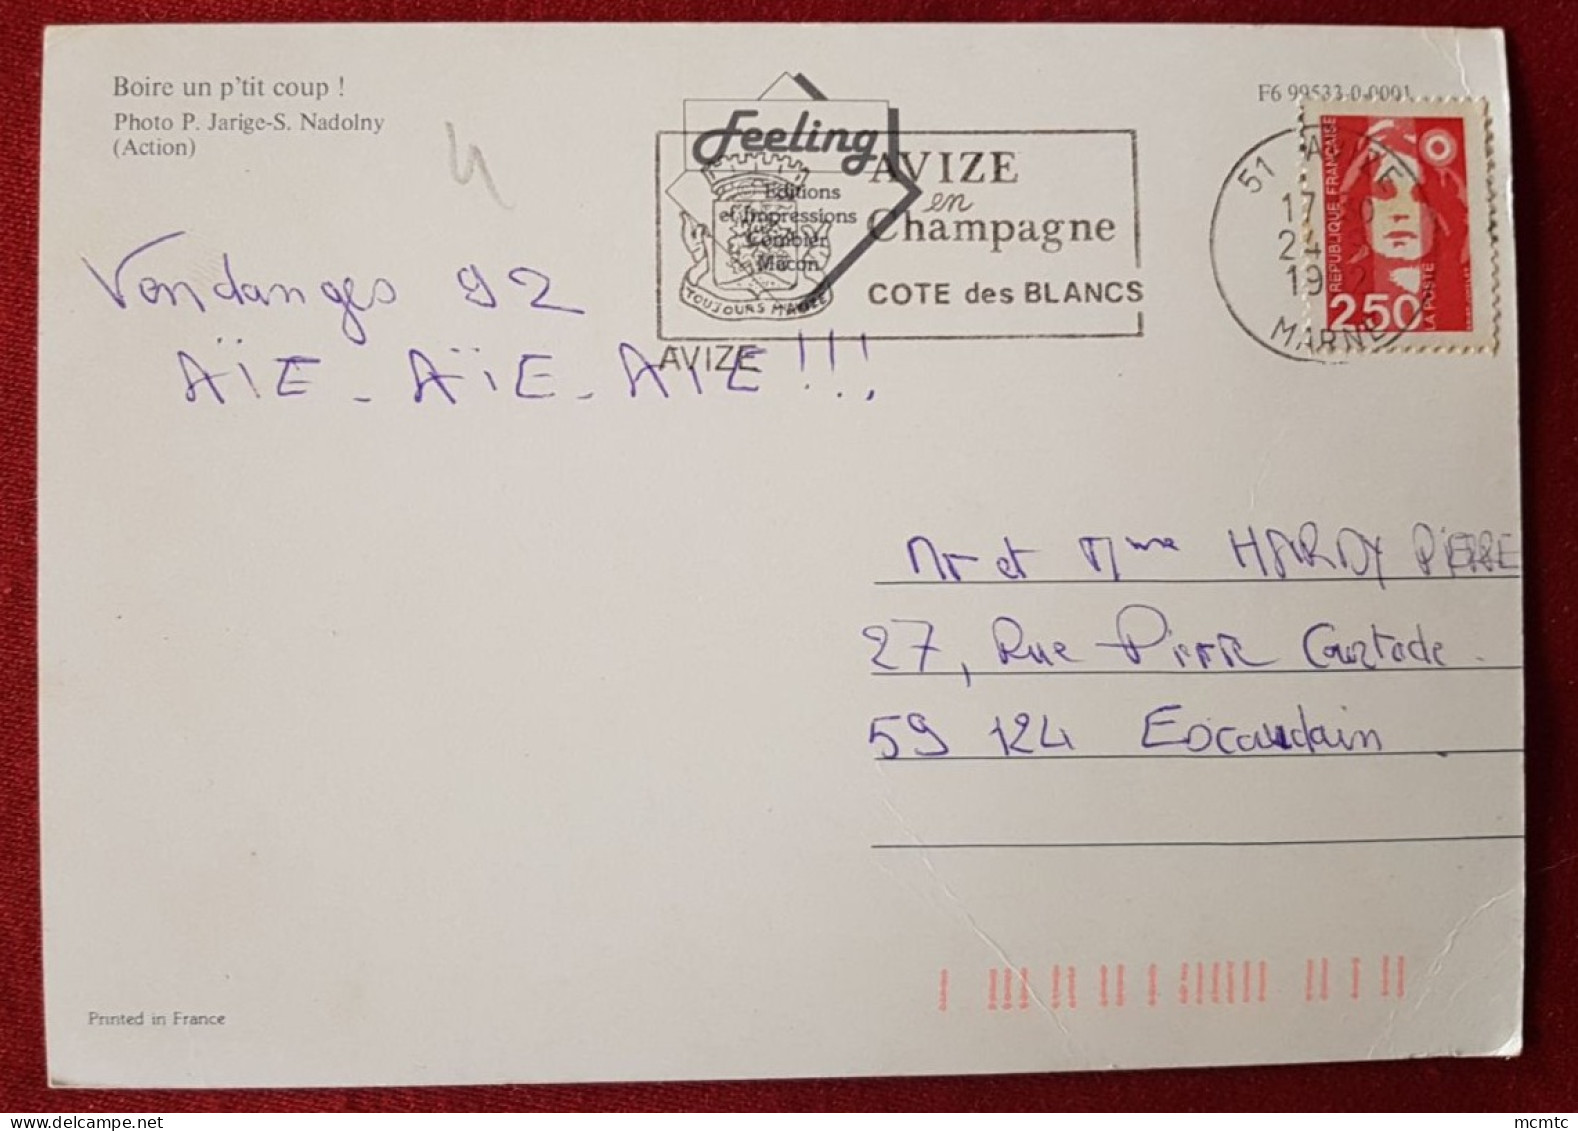 Boire un p'tit coup !
Photo P. Jarige-S. Nadolny
(Action)
F6 99533-0-0001
Feeling
Editions
et Impressions
Combier
Macon
TOUJOURS
AVIZE
en
Champagne
COTE des BLANCS
AVIZE
51 AVIZE
17
24
1992
MARNE
REPUBLIQUE FRANÇAISE
2,50
LA POSTE
Vendanges 92
AÏE - AÏE - AIE !!!
Mr et Mme HARDY PIERRE
27, Rue Pierre Courtade.
59 124 Escaudain
Printed in France
www.delcampe.net
mcmtc